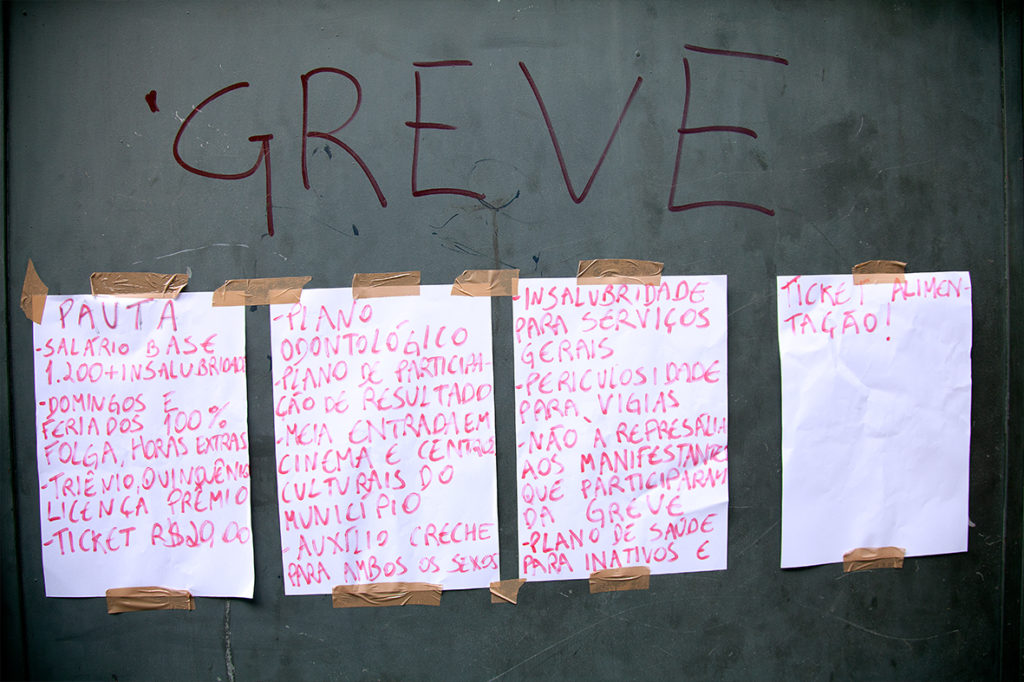 GREVE
PAUTA
-SALÁRIO BASE
1.200+INSALUBRIDADE
-DOMINGOS E
FERIADOS 100%
FOLGA, HORAS EXTRAS
-TRIÊNIO, QUINQUÊNIO
LICENÇA PRÊMIO
-TICKET R$20,00
-PLANO
ODONTOLÓGICO
-PLANO DE PARTICIPA-
ÇÃO DE RESULTADO
-MEIA ENTRADA EM
CINEMA E CENTROS
CULTURAIS DO
MUNICÍPIO
-AUXÍLIO CRECHE
PARA AMBOS OS SEXOS
-INSALUBRIDADE
PARA SERVIÇOS
GERAIS
-PERICULOSIDADE
PARA VIGIAS
-NÃO À REPRESÁLIA
AOS MANIFESTANTES
QUE PARTICIPARAM
DA GREVE
-PLANO DE SAÚDE
PARA INATIVOS E
TICKET ALIMEN-
TAÇÃO!